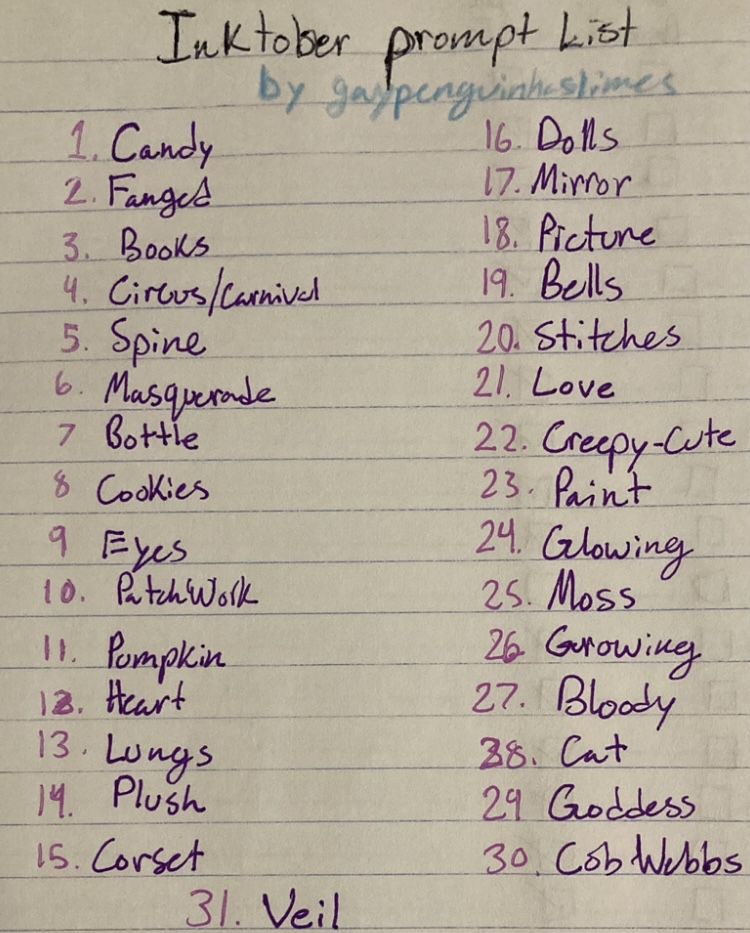 Inktober prompt List
by gaypenguinhaslimes
1. Candy
2. Fanged
3. Books
4. Circus/Carnival
5. Spine
6. Masquerade
7 Bottle
8 Cookies
9 Eyes
10. PatchWork
11. Pumpkin
12. Heart
13. Lungs
14. Plush
15. Corset
16. Dolls
17. Mirror
18. Picture
19. Bells
20. Stitches
21. Love
22. Creepy-Cute
23. Paint
24. Glowing
25. Moss
26 Growing
27. Bloody
28. Cat
29 Goddess
30. Cob Webbs
31. Veil